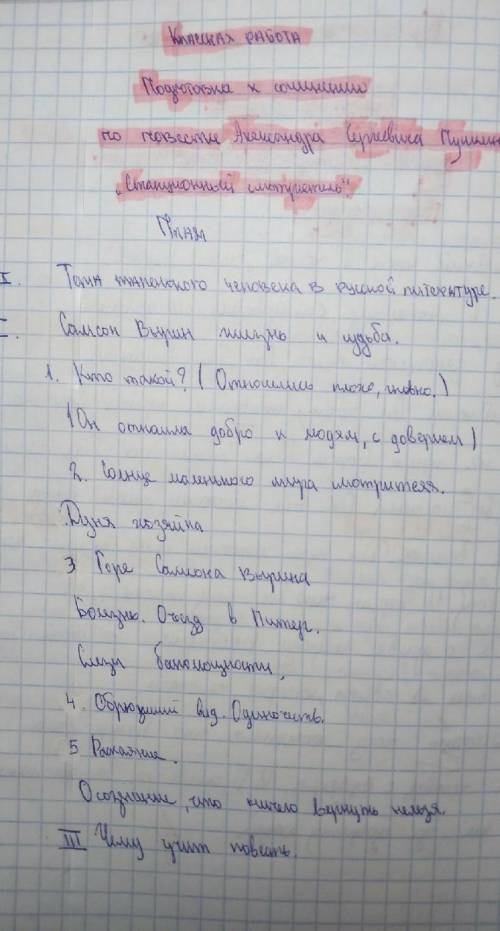 Классная работа
Подготовка к сочинению
по повести Александра Сергеевича Пушкин
„Станционный смотритель".
План
I. Тема маленького человека в русской литературе.
I. Самсон Вырин жизнь и судьба.
1. Кто такой? (Относились плохо, гневно.)
(Он относила добро к людям, с доверием)
2. Солнце маленького мира смотрителя.
Дуня хозяйка
3 Горе Самсона Вырина
Болезнь. Отъезд в Питер.
Слезы беспомощности,
4. Обрюзший вид. Одиночеств.
5 Раскаяние.
Осознание, что ничего вернуть нельзя
III Чему учит повесть.